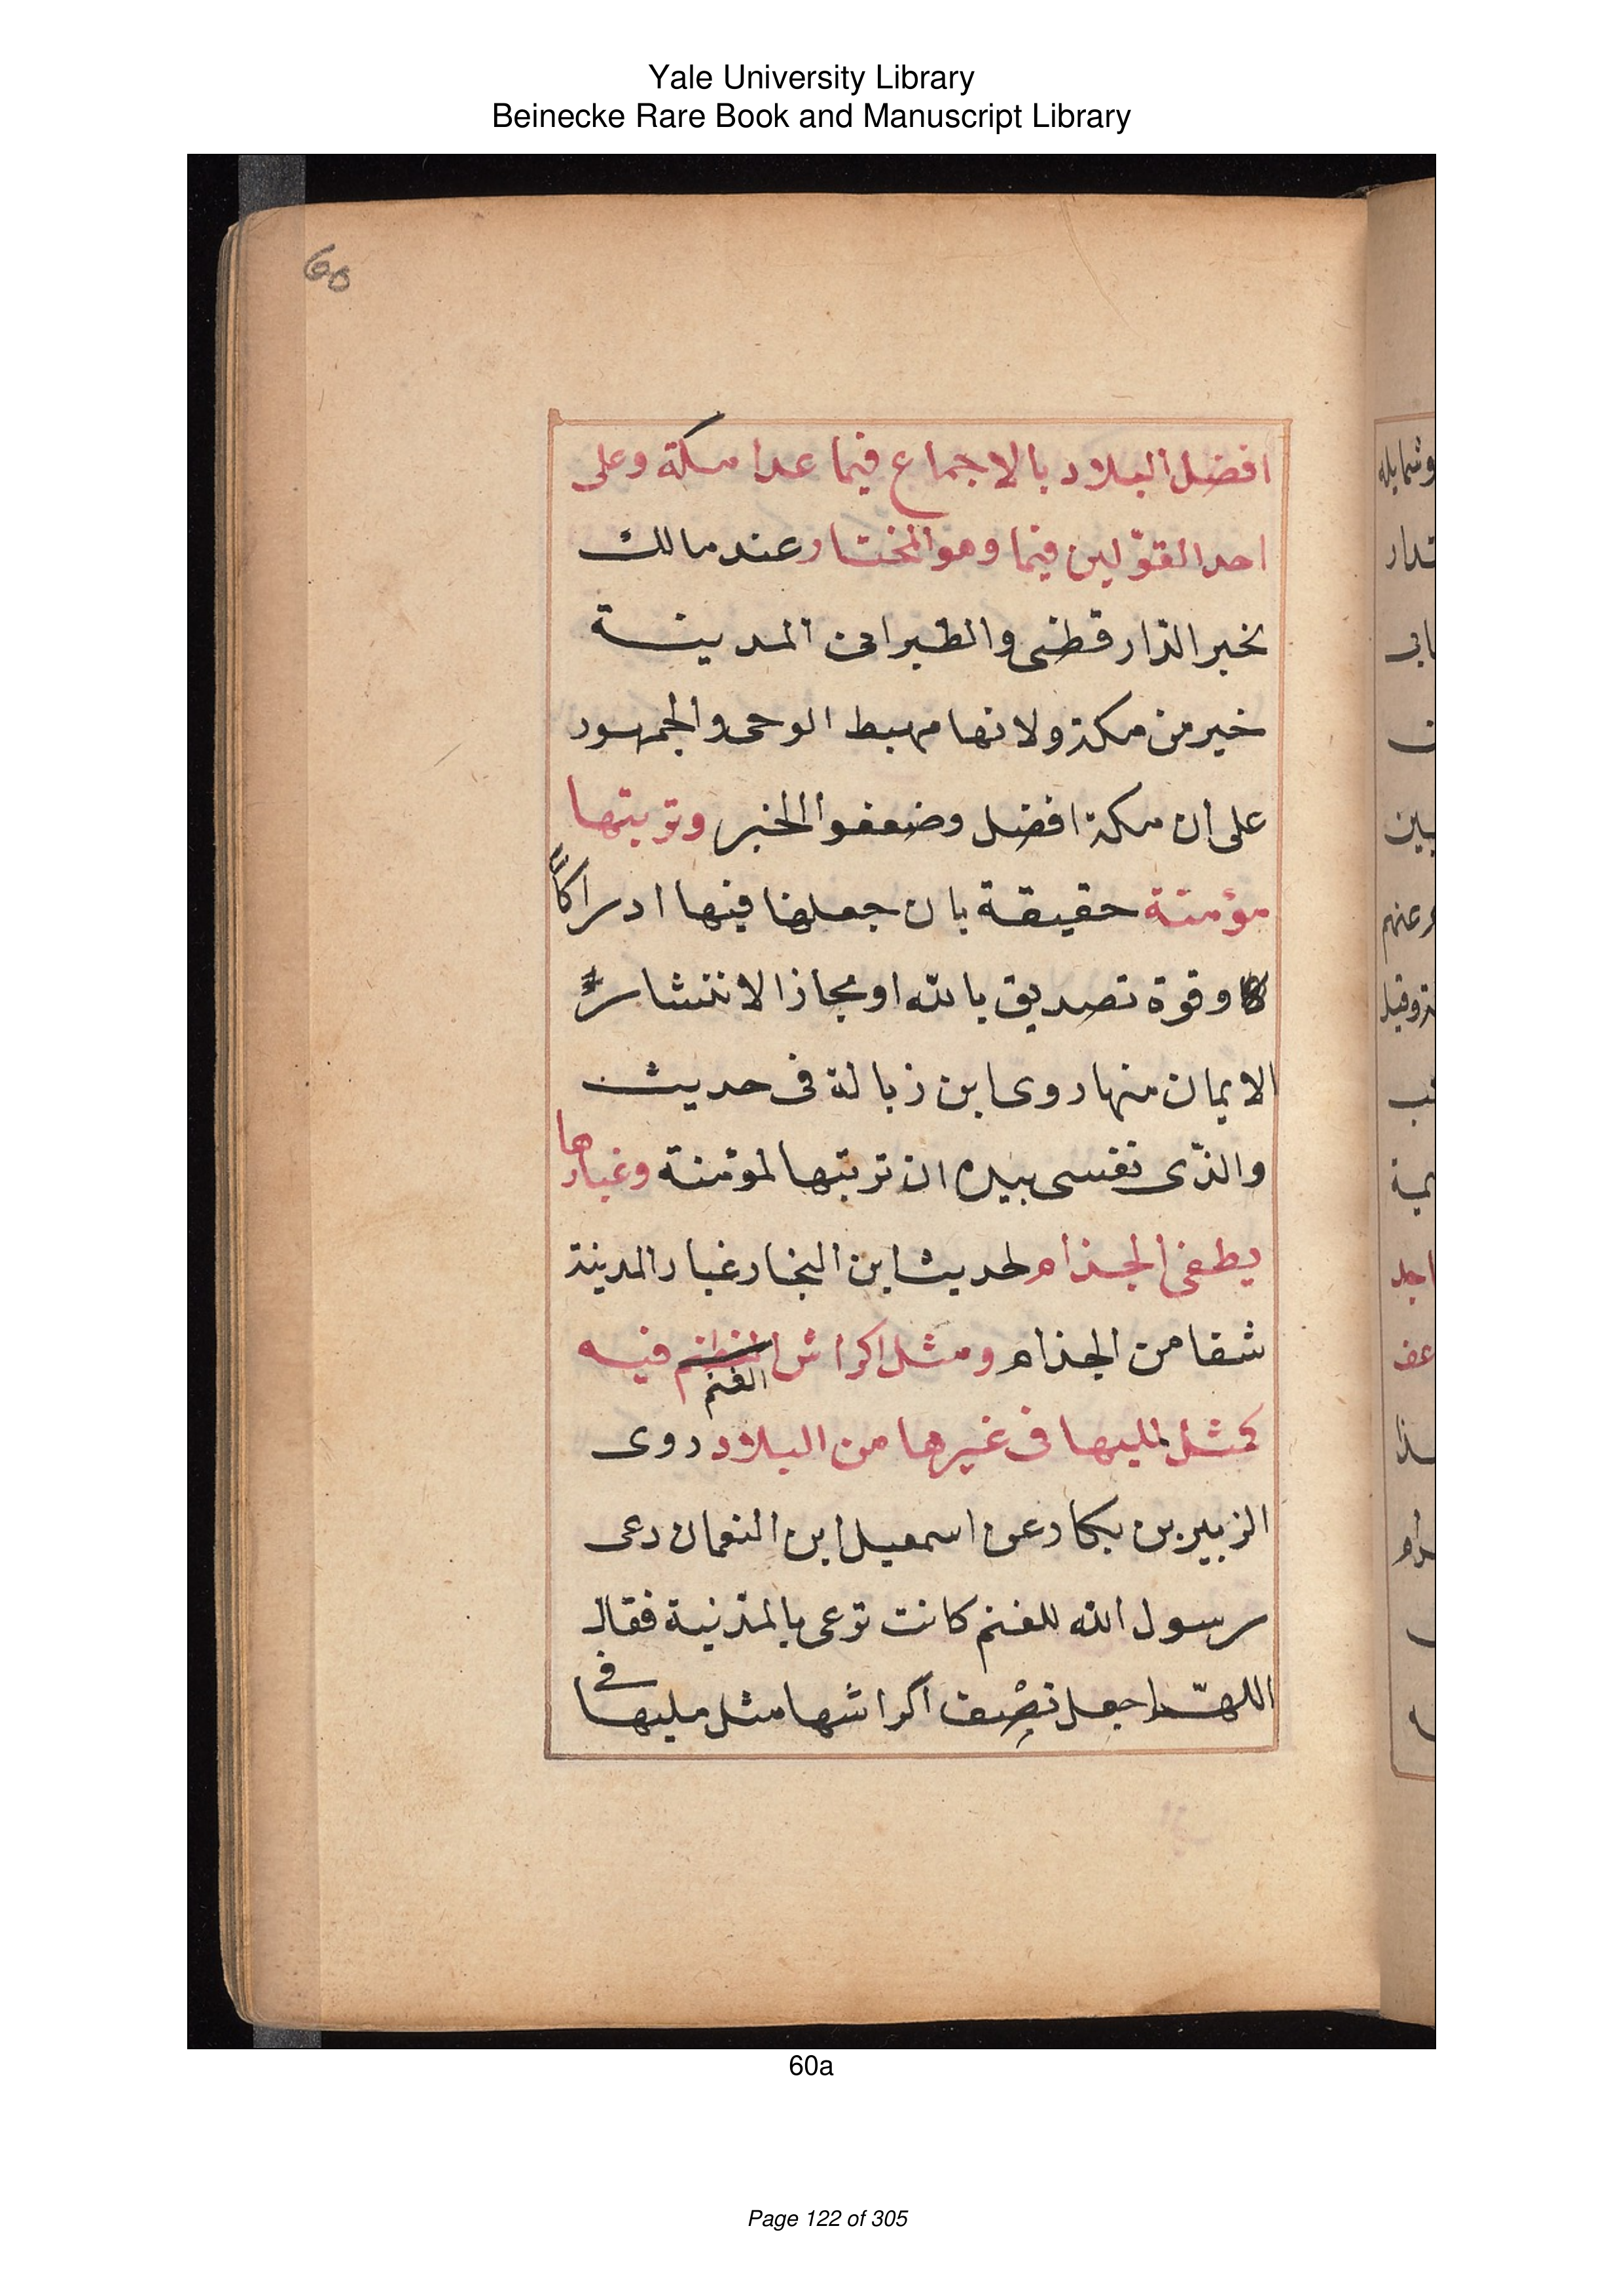 Yale University Library
Beinecke Rare Book and Manuscript Library
60
افضل البلاد بالاجماع فيما عدا مكة وعلى
احد القوّلين فيما وهو المختار عند مالك
بخبر الدار قطنى والطبرانى المدينة
خير من مكة ولانها مهبط الوحى والجمهور
على ان مكة افضل وضعفوا الخبر وتربتها
مؤمنة حقيقة بان جعل فيها ادراكاً
وقوة تصديق بالله او مجازا لانتشار
الايمان منها روى ابن زبالة فى حديث
والذّى نفسى بيده ان تربتها لمؤمنة وغبارها
يطفى الجذام لحديث ابن النجار غبار المدينة
شفا من الجذام ومثل اكراش الغنم فيه
كمثل لمليها فى غيرها من البلاد روى
الزبير بن بكار عن اسمعيل ابن النعمان دعى
رسول الله للغنم كانت ترعى بالمدنية فقال
اللهمّ اجعل نصْف اكراشها مثل مليها فى
وشمايله
60a
Page 122 of 305